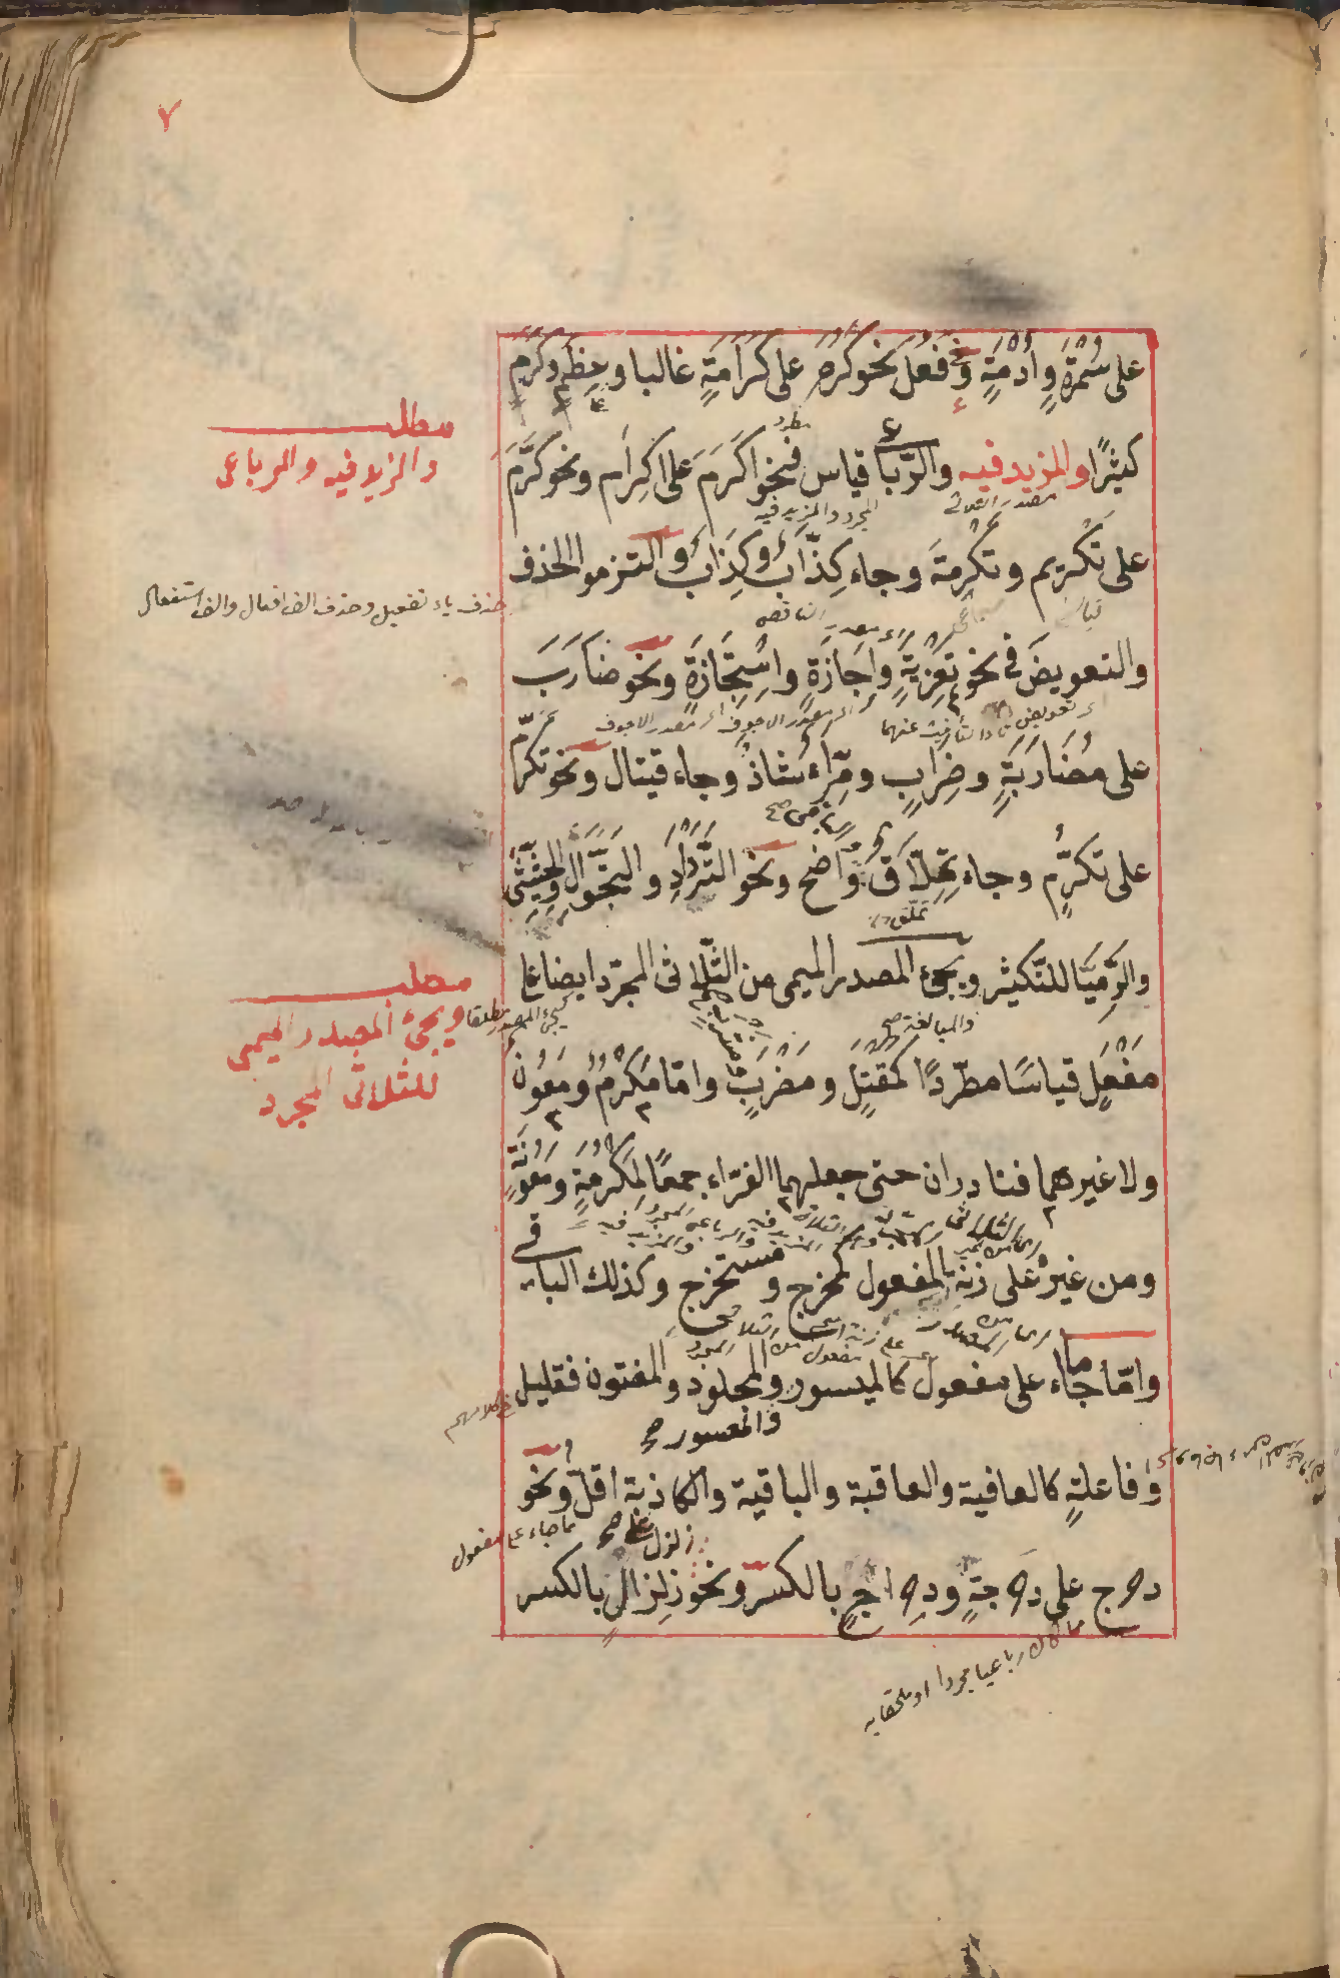 ٧
على سُمْرَةٍ وأُدْمَةٍ وفَعُلَ نحو كَرُمَ على كَرَامَةٍ غالبا وعِظَمٍ وكَرَمٍ
كثيرًا والمزيد فيه والرّباعى قياس فنحو اَكْرَمَ على اِكرام ونحو كَرَّمَ
على تكريم وتكرمة وجاء كِذّاب وكِذَاب والتزموا الحذف
والتعويض فى نحو تعزيةٍ واِجَازَةٍ واسْتِجَازَةٍ ونحو ضَارَبَ
على مُضَارَبَةٍ وضِرَابٍ ومِرَّاء شاذ وجاء قيتال ونحو تكرّم
على تكرُّمٍ وجاء تِمِلّاق وواضح ونحو التَّرْدَادِ والتَّجْوَالِ والحِثِّيثَى
والرِّمِّيَّا للتّكثير ويجئ المصدر الميمى من الثّلاثى المجرّد ايضا على
مَفْعَل قياسًا مطّردًا كمَقْتَلٍ ومَضْرَبٍ وامّا مَكْرُمٌ ومَعُونٌ
ولا غيرهما فنادران حتى جعلهما الفرّاء جمعًا لمَكْرُمَةٍ ومَعُونَةٍ
ومن غيره على زنة المفعول كمُخرج ومستخرج وكذلك الباقى
وامّا ما جاء على مفعول كالميسور والمجلود والمفتون فقليل
والمعسور صح
وفاعلةٍ كالعافية والعاقبة والباقية والكاذبة اقلّ ونحو
دحرج على دحرجةٍ ودحراجٍ بالكسر ونحو زلزالٍ بالكسر
زلزل على صح
مطلب
والمزيد فيه والرباعى
حذف ياء تفعيل وحذف الف افعال والف استفعال
مطلب
ويجئ المصدر الميمى
للثلاثى المجرد
مصدر الثلاثى
المجرد والمزيد فيه
والمبالغة صح
فى كلامهم
ما جاء على مفعول
ما كان رباعيا مجردا او ملحقا به